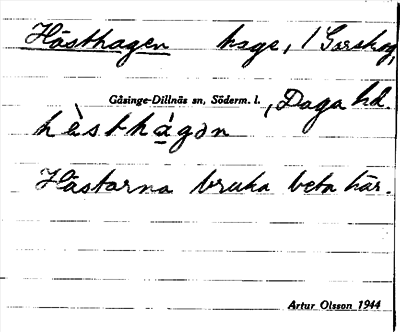 Hästhagen hage, 1 Garskog,
Gåsinge-Dillnäs sn, Söderm. l., Daga hd.
hὲsthàgən
Hästarna bruka beta här.
Artur Olsson 1944